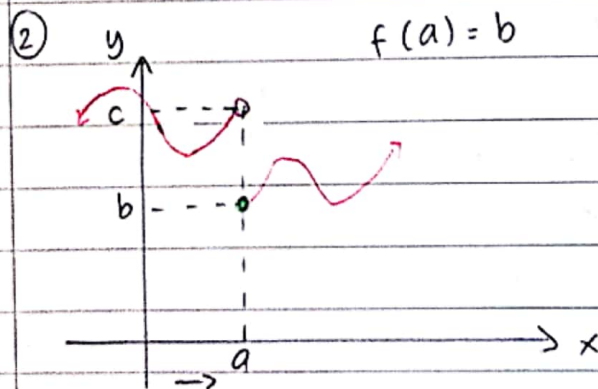 ② y f(a) = b
c
b
a x